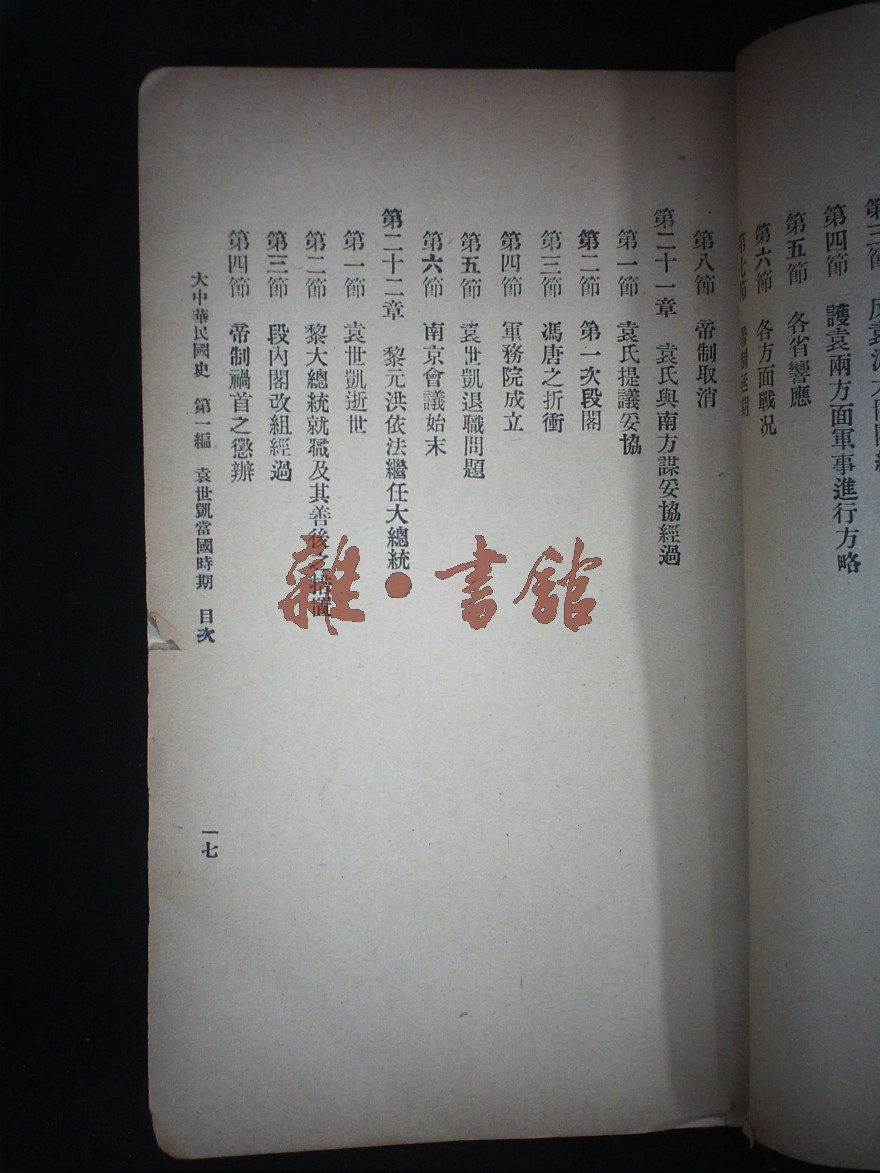 第四節 護袁兩方面軍事進行方略
第五節 各省響應
第六節 各方面戰況
第七節 帝制延期
第八節 帝制取消
第二十一章 袁氏與南方謀妥協經過
第一節 袁氏提議妥協
第二節 第一次段閣
第三節 馮唐之折衝
第四節 軍務院成立
第五節 袁世凱退職問題
第六節 南京會議始末
第二十二章 黎元洪依法繼任大總統
第一節 袁世凱逝世
第二節 黎大總統就職及其善後之措置
第三節 段內閣改組經過
第四節 帝制禍首之懲辦
大中華民國史 第一編 袁世凱當國時期 目次
一七
雜·書館